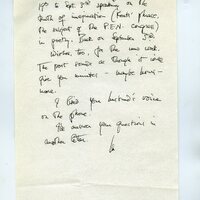 19th to Sept 3rd speaking on the
truth of imagination (Keats' phrase,
the subject of the P.E.N. congress)
in poetry. Back on September 5th
Wishes, too, for the new work.
The post sounds as though it will
give you minutes – maybe hours –
more.
I liked your husband's voice
on the phone.
I'll answer your questions in
another letter.